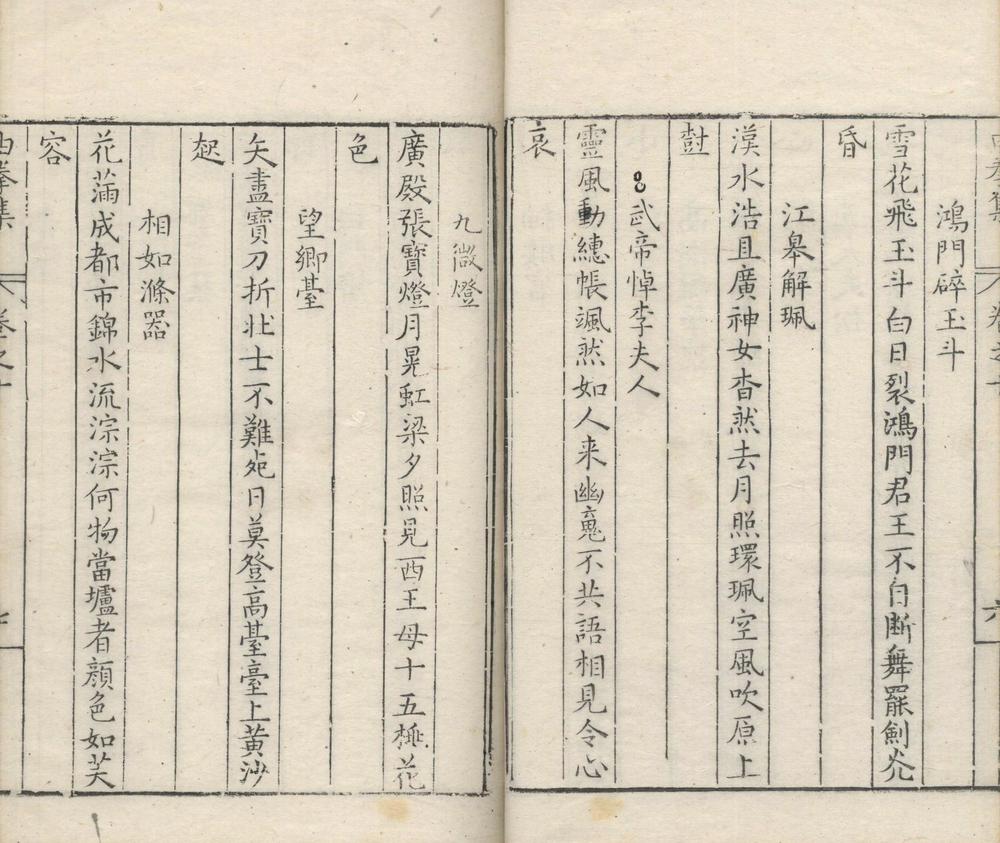 鴻門碎玉斗
雪花飛玉斗白日裂鴻門君王不自斷舞罷劍光
昏
江皋解珮
漢水浩且廣神女杳然去月照環珮空風吹原上
樹
武帝悼李夫人
靈風動繐帳颯然如人来幽䰟不共語相見令心
哀
九微燈
廣殿張寶燈月晃虹梁夕照見西王母十五桃花
色
望鄉臺
矢盡寶刀折壯士不難死日莫登高臺臺上黃沙
起
相如滌器
花滿成都市錦水流淙淙何物當壚者顏色如芙
容